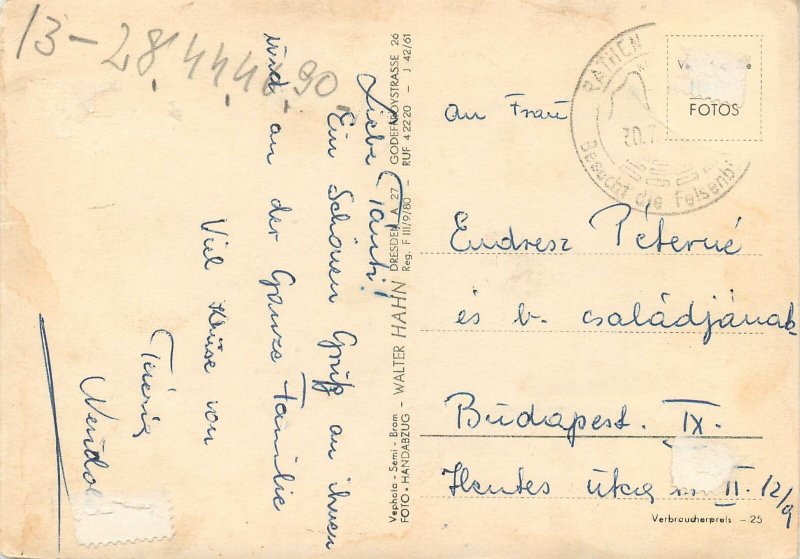 13-28.44.46.90.
Liebe Tánti!
Ein Schönen Gruß an ihnen
und an der Ganze Familie
Viel Küse von
Teréria
Vephota - Seml - Bram DRESDEN A 27 GODEFROYSTRASSE 26
FOTO-HANDABZUG - WALTER HAHN Reg. F III/9/80 - RUF 4 22 20 - J 42/61
RATHEN
30.7
Besucht die Felsenb
FOTOS
an Frau
Endresz Péterné
és b. családjának
Budapest. IX.
Hentes utca II. 12/9
Verbraucherpreis -25